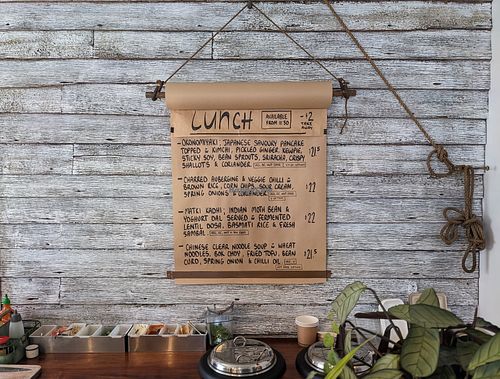 LUNCH AVAILABLE FROM 11:30 -$2 TAKE AWAY
- OKONOMIYAKI; JAPANESE SAVOURY PANCAKE
TOPPED W KIMCHI, PICKLED GINGER, KEWPIE,
STICKY SOY, BEAN SPROUTS, SRIRACHA, CRISPY
SHALLOTS & CORIANDER $21.5
- CHARRED AUBERGINE & VEGGIE CHILLI W
BROWN RICE, CORN CHIPS, SOUR CREAM,
SPRING ONIONS & CORIANDER $22
- MATKI KADHI; INDIAN MOTH BEAN &
YOGHURT DAL SERVED W FERMENTED
LENTIL DOSA, BASMATI RICE & FRESH
SAMBAL $22
- CHINESE CLEAR NOODLE SOUP W WHEAT
NOODLES, BOK CHOY, FRIED TOFU, BEAN
CURD, SPRING ONION & CHILLI OIL $21.5